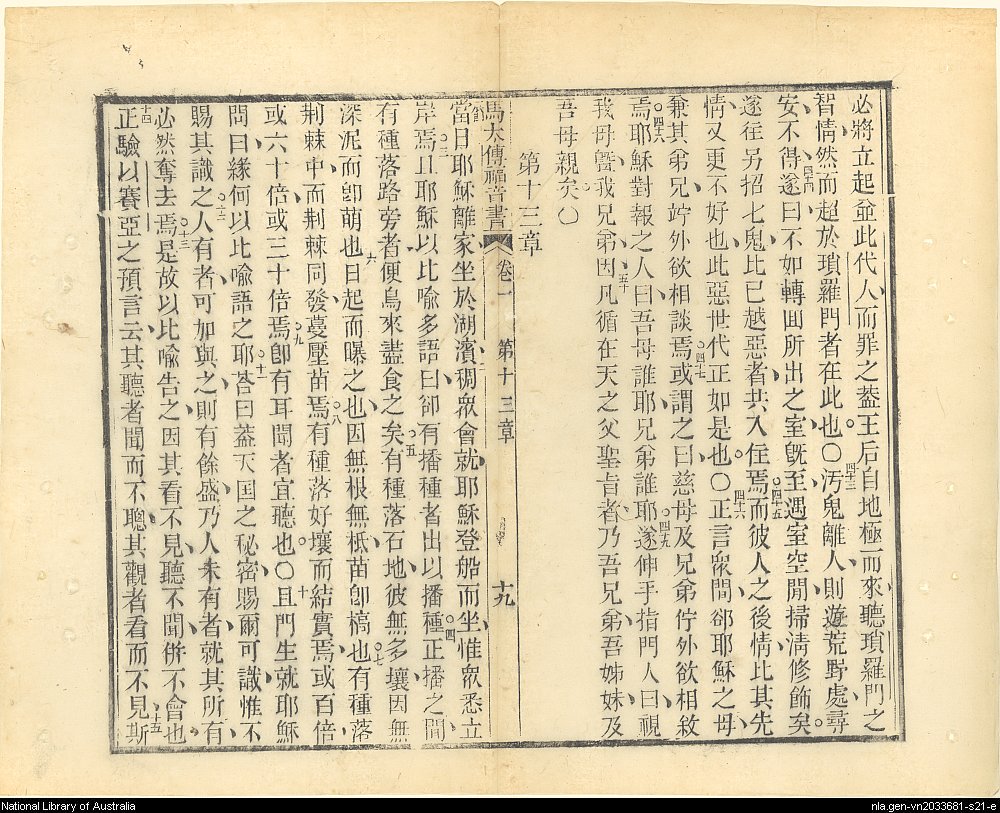 必將立起並此代人而罪之蓋王后自地極而來聽瑣羅門之
智情然而超於瑣羅門者在此也〇四十三汚鬼離人則遊荒野處尋
安不得四十四遂曰不如轉囬所出之室旣至遇室空閒掃淸修飾矣
遂往另招七鬼比已越惡者共入住焉四十五而彼人之後情比其先
情又更不好也此惡世代正如是也〇四十六正言衆間郤耶穌之母
兼其弟兄竚外欲相談焉或謂之四十七曰慈母及兄弟佇外欲相敘
焉四十八耶穌對報之人曰吾母誰耶兄弟誰耶四十九遂伸手指門人曰視
我母曁我兄弟五十因凡循在天之父聖旨者乃吾兄弟吾姊妹及
吾母親矣〇
第十三章
馬太傳福音書 卷一 第十三章 十九
當日耶穌離家坐於湖濱二稠衆會就耶穌登船而坐惟衆悉立
岸焉三且耶穌以比喻多語曰郤有播種者出以播種四正播之間
有種落路旁者便鳥來盡食之矣五有種落石地彼無多壤因無
深泥而卽萌也六日起而曝之也因無根無柢苗卽槁也七有種落
荆棘中而荆棘同發蔓壓苗焉八有種落好壤而結實焉或百倍
或六十倍或三十倍焉九卽有耳聞者宜聽也〇十且門生就耶穌
問曰緣何以比喻語之耶十一荅曰蓋天国之秘密賜爾可識惟不
賜其識之十二人有者可加與之則有餘盛乃人未有者就其所有
必然奪去焉十三是故以比喻告之因其看不見聽不聞併不會也
十四正驗以賽亞之預言云其聽者聞而不聰其觀者看而不見十五斯
National Library of Australia
nla.gen-vn2033681-s21-e